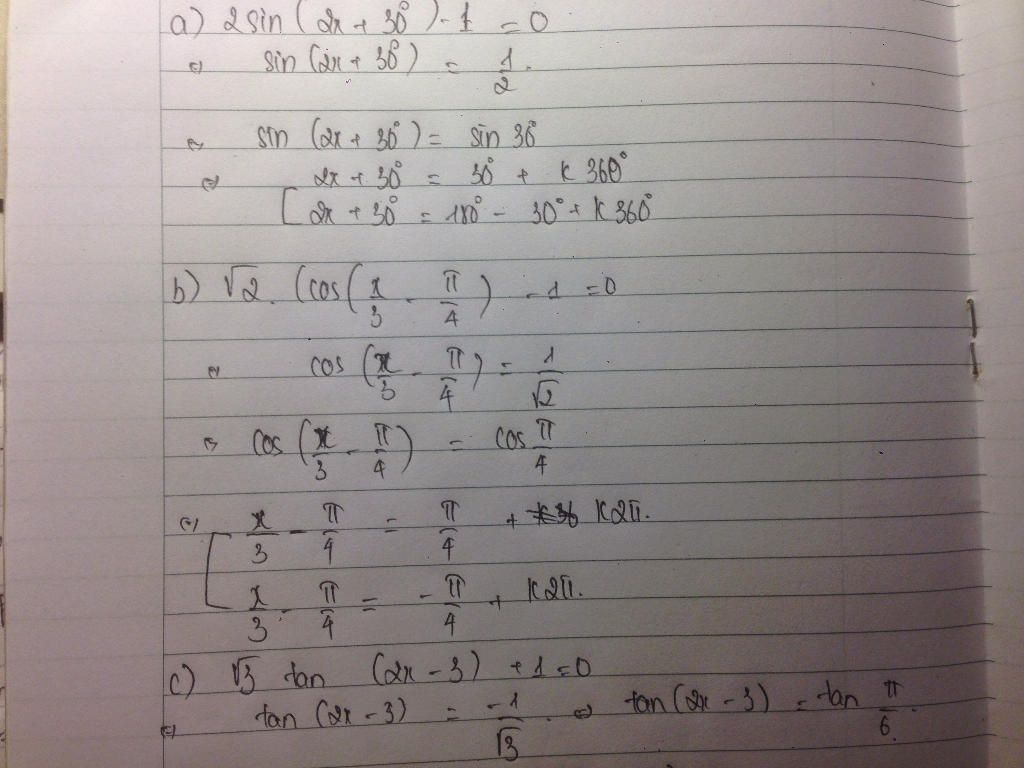 a) 2sin(2x + 30°) - 1 = 0
⇔ sin(2x + 30°) = 1/2.
⇔ sin(2x + 30°) = sin 30°
⇔ 2x + 30° = 30° + k360°
[ 2x + 30° = 180° - 30° + k360°
b) √2. (cos(x/3 - π/4) - 1 = 0
⇔ cos(x/3 - π/4) = 1/√2
⇔ cos(x/3 - π/4) = cos π/4
⇔ [ x/3 - π/4 = π/4 + k2π.
x/3 - π/4 = -π/4 + k2π.
c) √3 tan (2x - 3) + 1 = 0
⇔ tan(2x - 3) = -1/√3. ⇔ tan(2x - 3) = tan π/6.